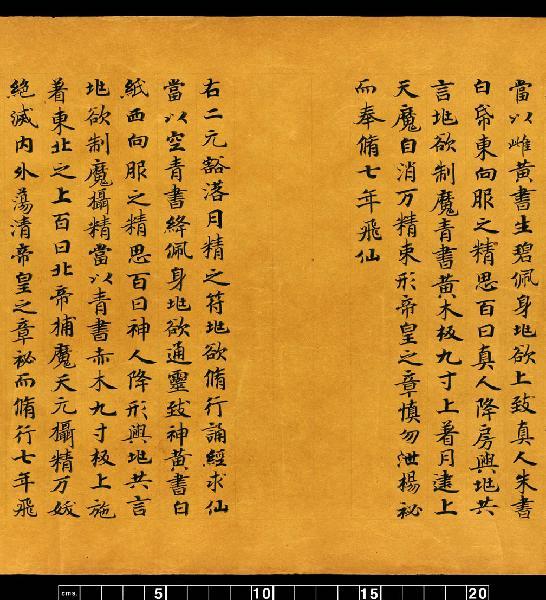 當以雌黃書生碧佩身地欲上致真人朱書
白帋東向服之精思百日真人降房與地共
言地欲制魔青書黃木板九寸上着月建上
天魔自消万精束形帝皇之章慎勿泄揚祕
而奉脩七年飛仙
右二元豁落月精之符地欲脩行誦經求仙
當以空青書絳佩身地欲通靈致神黃書白
紙西向服之精思百日神人降形與地共言
地欲制魔攝精當以青書赤木九寸板上施
着東北之上百日北帝捕魔天元攝精万妖
絕滅內外蕩清帝皇之章祕而脩行七年飛
cms. 5 10 15 20